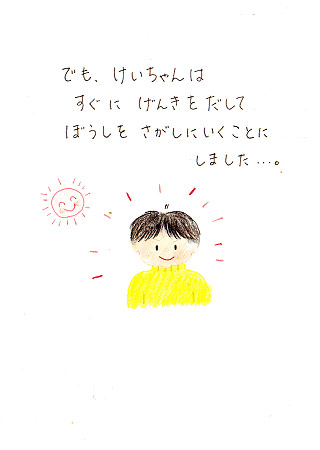 でも、けいちゃんは
すぐに げんきをだして
ぼうしを さがしにいくことに
しました…。